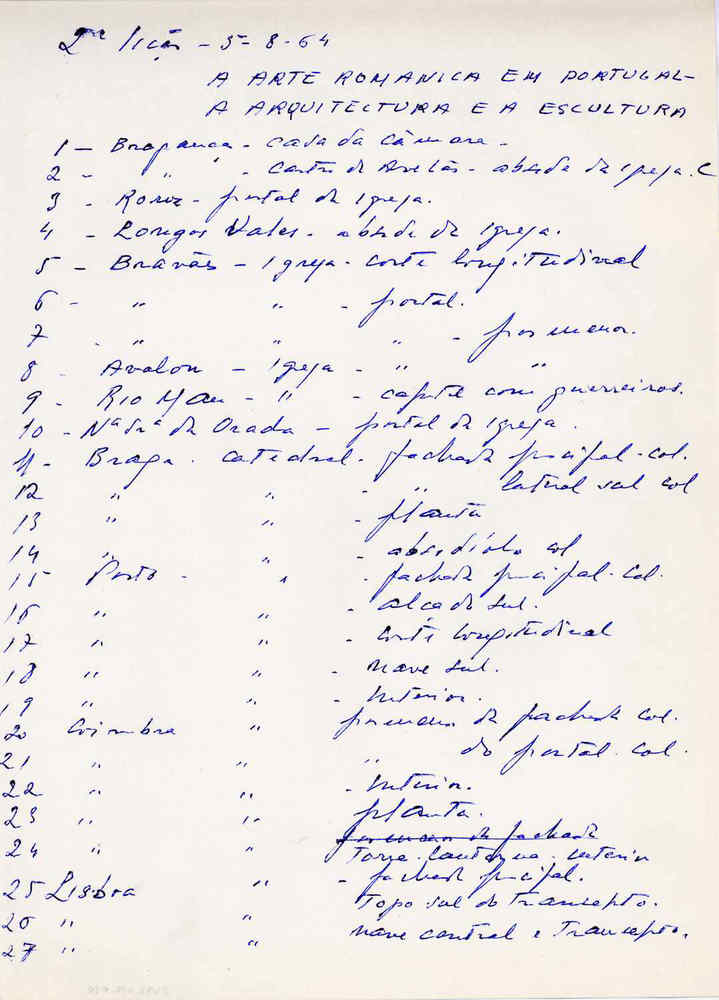 2ª lição - 5-8-64
A ARTE ROMANICA EM PORTUGAL-
A ARQUITECTURA E A ESCULTURA
1 - Bragança - casa da câmara -
2 - " " - Castro de Avelãs - abside da igreja. C
3 - Roriz - portal da igreja.
4 - Longos Vales - abside da igreja.
5 - Bravães - Igreja - corte longitudinal
6 - " " - portal.
7 - " " " - pormenor.
8 - Avalon - Igreja - " "
9 - Rio Mau - " - capitel com guerreiros.
10 - Nª Srª da Orada - portal da igreja.
11 - Braga - catedral - fachada pincipal - col.
12 " " - " lateral sul col
13 " " - planta
14 " " - absidíolo col
15 - Porto - " - fachada pincipal - col.
16 " " - alçado sul.
17 " " - corte longitudinal
18 " " - nave sul.
19 " " - Interior.
20 Coimbra " pormenor da fachada col.
21 " " " do portal. col.
22 " " - Interior.
23 " " planta.
pormenor da fachada
24 " " Torre-lanterna - interior
25 Lisboa " - fachada pincipal.
26 " " Topo sul do transepto.
27 " " nave central e transepto.